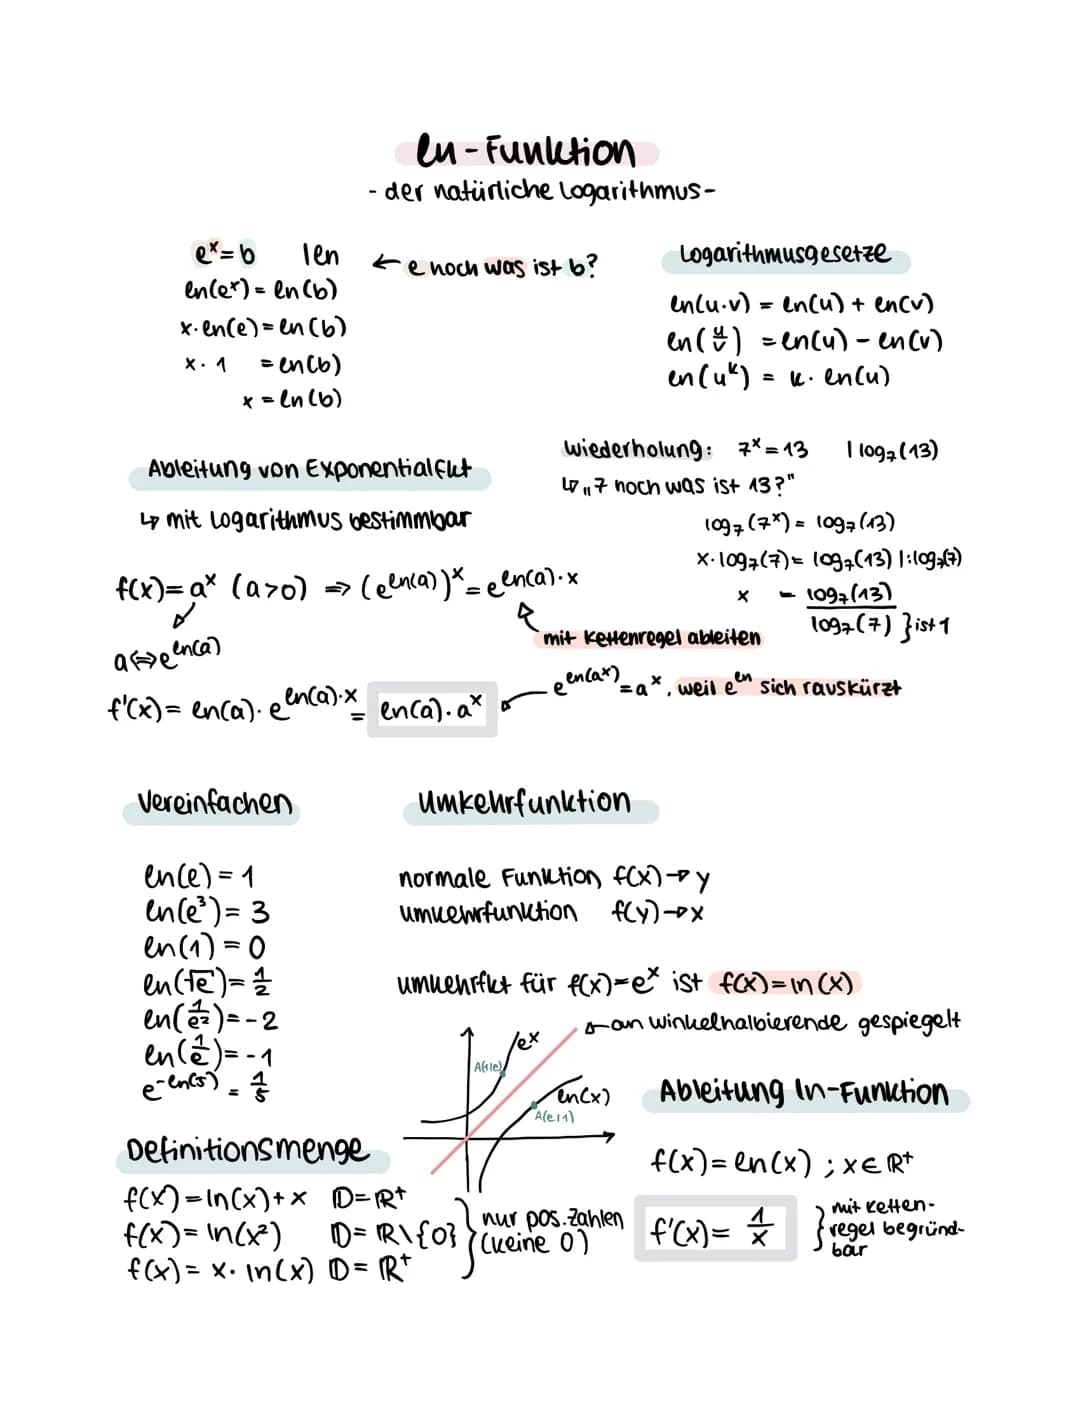 ln-Funktion
- der natürliche Logarithmus-
eˣ = b | ln ← e hoch was ist b?
ln(eˣ) = ln(b)
x · ln(e) = ln(b)
x · 1 = ln(b)
x = ln(b)
Logarithmusgesetze
ln(u·v) = ln(u) + ln(v)
ln(u/v) = ln(u) - ln(v)
ln(uᵏ) = k · ln(u)
Ableitung von Exponentialfkt
↳ mit Logarithmus bestimmbar
Wiederholung: 7ˣ = 13 | log₇(13)
↳ „7 hoch was ist 13?"
log₇(7ˣ) = log₇(13)
x · log₇(7) = log₇(13) | : log₇(7)
x = log₇(13)/log₇(7) } ist 1
f(x) = aˣ (a>0) ⇒ (e^ln(a))ˣ = e^ln(a)·x
a ⇔ e^ln(a)
mit Kettenregel ableiten
f'(x) = ln(a) · e^ln(a)·x = ln(a) · aˣ
e^ln(aˣ) = aˣ, weil e^ln sich rauskürzt
Vereinfachen
ln(e) = 1
ln(e³) = 3
ln(1) = 0
ln(√e) = 1/2
ln(1/e²) = -2
ln(1/e) = -1
e^-ln(5) = 1/5
Umkehrfunktion
normale Funktion f(x) → y
umkehrfunktion f(y) → x
umkehrfkt für f(x) = eˣ ist f(x) = ln(x)
an winkelhalbierende gespiegelt
eˣ
A(1|e)
ln(x)
A(e|1)
Definitionsmenge
f(x) = ln(x) + x D = ℝ⁺
f(x) = ln(x²) D = ℝ\{0}
f(x) = x · ln(x) D = ℝ⁺
nur pos. Zahlen
(keine 0)
Ableitung ln-Funktion
f(x) = ln(x) ; x ∈ ℝ⁺
f'(x) = 1/x
mit ketten-
regel begründ-
bar